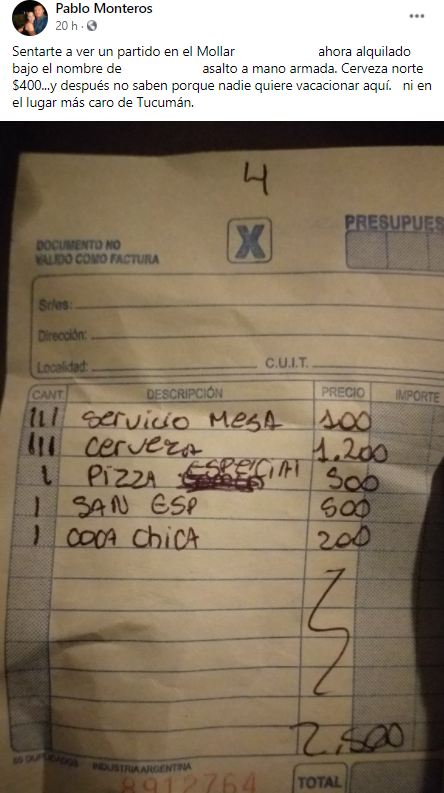 Pablo Monteros
20 h ·
Sentarte a ver un partido en el Mollar ahora alquilado
bajo el nombre de asalto a mano armada. Cerveza norte
$400...y después no saben porque nadie quiere vacacionar aquí. ni en
el lugar más caro de Tucumán.
4
DOCUMENTO NO
VALIDO COMO FACTURA
X
PRESUPUES
Sr/es:
Dirección:
Localidad: C.U.I.T.
CANT. DESCRIPCIÓN PRECIO IMPORTE
III servicio MESA 100
III cerveza 1.200
1 PIZZA ESPECIAL 500
1 SAN ESP 500
1 COCA CHICA 200
2.500
50 DUPLICADOS INDUSTRIA ARGENTINA
8912764
TOTAL